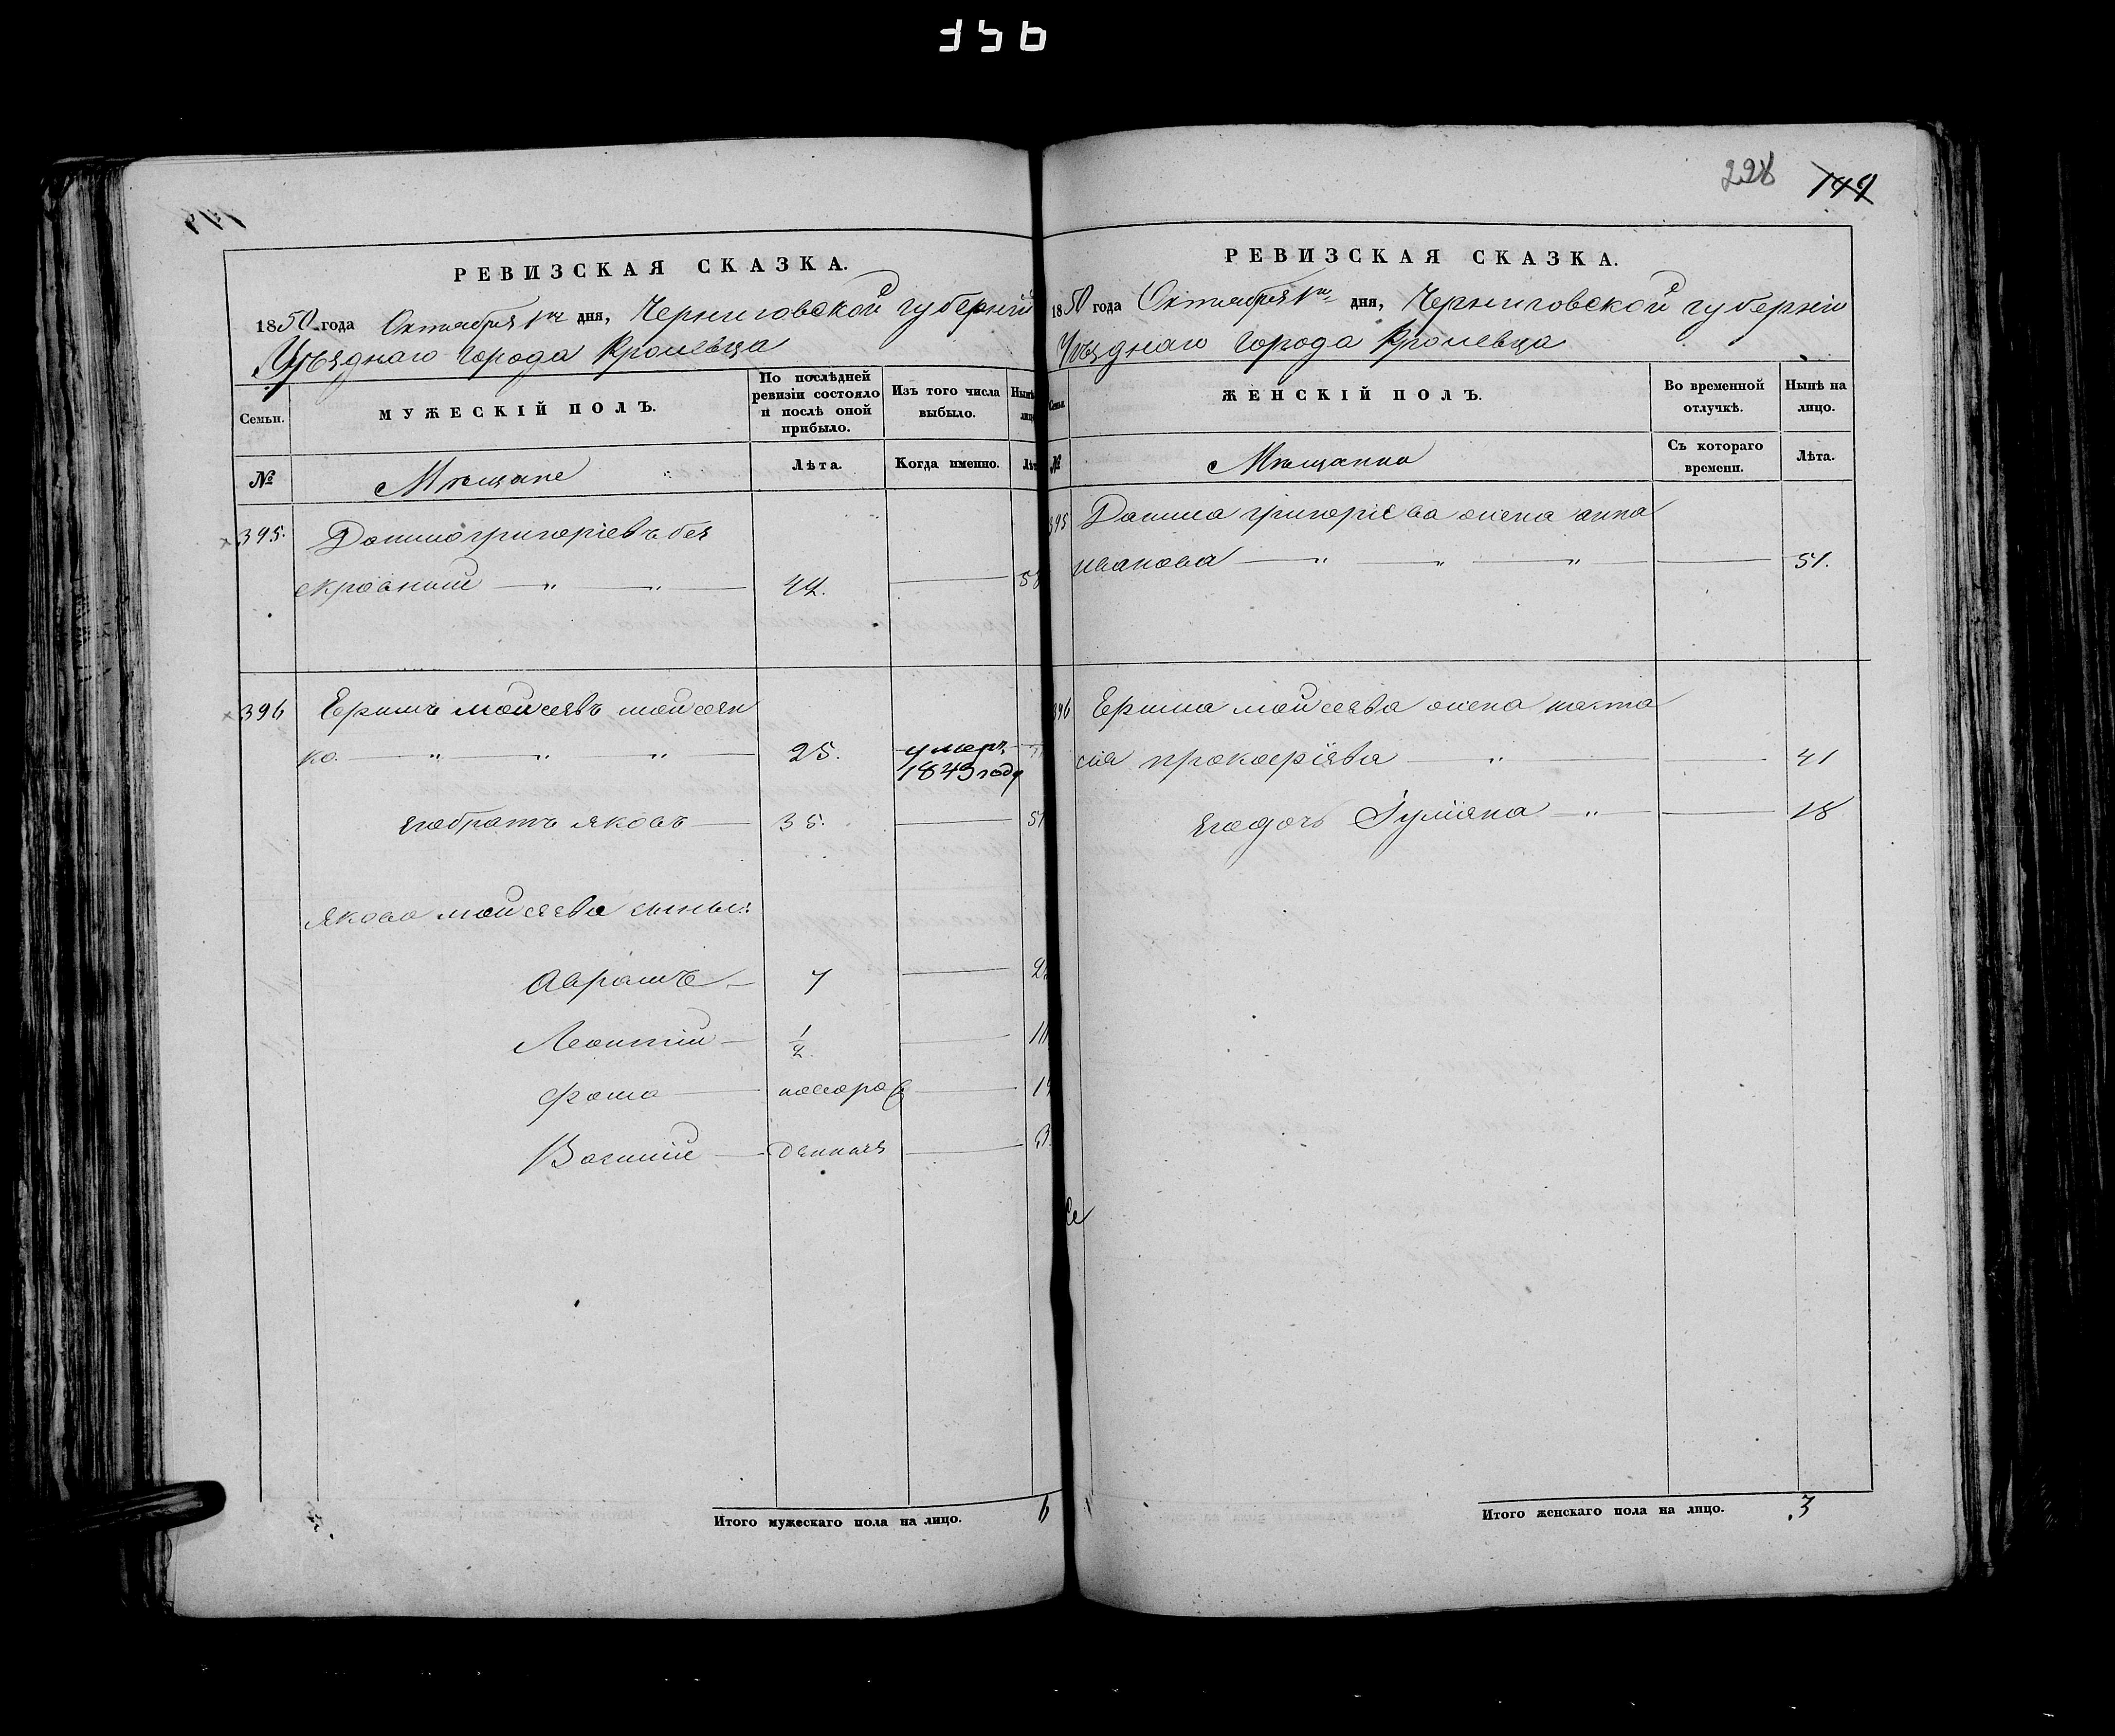 228 149
РЕВИЗСКАЯ СКАЗКА.
1850 года Октября 1го дня, Черниговской губерніи
Уѣзднаго города Кролевца
Семьи.
МУЖЕСКІЙ ПОЛЪ.
По послѣдней ревизіи состояло и послѣ оной прибыло.
Изъ того числа выбыло.
Нынѣ
лицо
№
Мѣщане
Лѣта.
Когда именно.
Лѣт
395. Данило григоріевъ без
скровный — " — " — 44. — 58
396 Ефимъ моисеевъ моисеен
ко. — " — " — " — 25. умеръ
1843 году
егобратъ яковъ — 35. — 51
Якова моисеева сыны:
Аврамъ — 7 —
Леонтій — 1/2 —
фома — новоро —
Василій — денные — 3.
Итого мужескаго пола на лицо. 6
РЕВИЗСКАЯ СКАЗКА.
1850 года Октября 1го дня, Черниговской губерніи
Уѣзднаго города Кролевца
Семьи.
ЖЕНСКІЙ ПОЛЪ.
Во временной отлучкѣ.
Нынѣ на лицо.
№
Мѣщанки
Съ котораго времени.
Лѣта.
395 Данила григоріева жена анна
иванова — " — " — " — 51.
396 Ефима моисеева жена наста
сія прокофіева — " — 41
егодочь Іулiяна — " — 18
Итого женскаго пола на лицо. 3